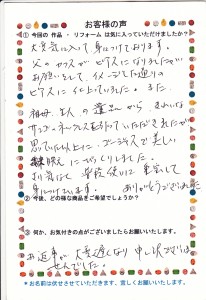 お客様の声
①今回の作品・リフォームは気に入っていただけましたか？
大変気に入って身につけております。
父のカフスがピアスになりましたが
お願いをして、イメージした通りの
ピアスに仕上っていました。また
祖母、主人の
サンゴ、ネックレスを作っていただきましたが
思っていた以上に、ゴージャスで美しい
にびっくりしました。
身につけています。ありがとうございました
②今後、どの様な商品をご希望でしょうか？
③何か、お気付きの点がございましたらお聞かせください。
お返事が大変遅くなり申し訳ございま
せんでした。
＊お名前は伏せさせていただきます。宜しくお願いいたします。